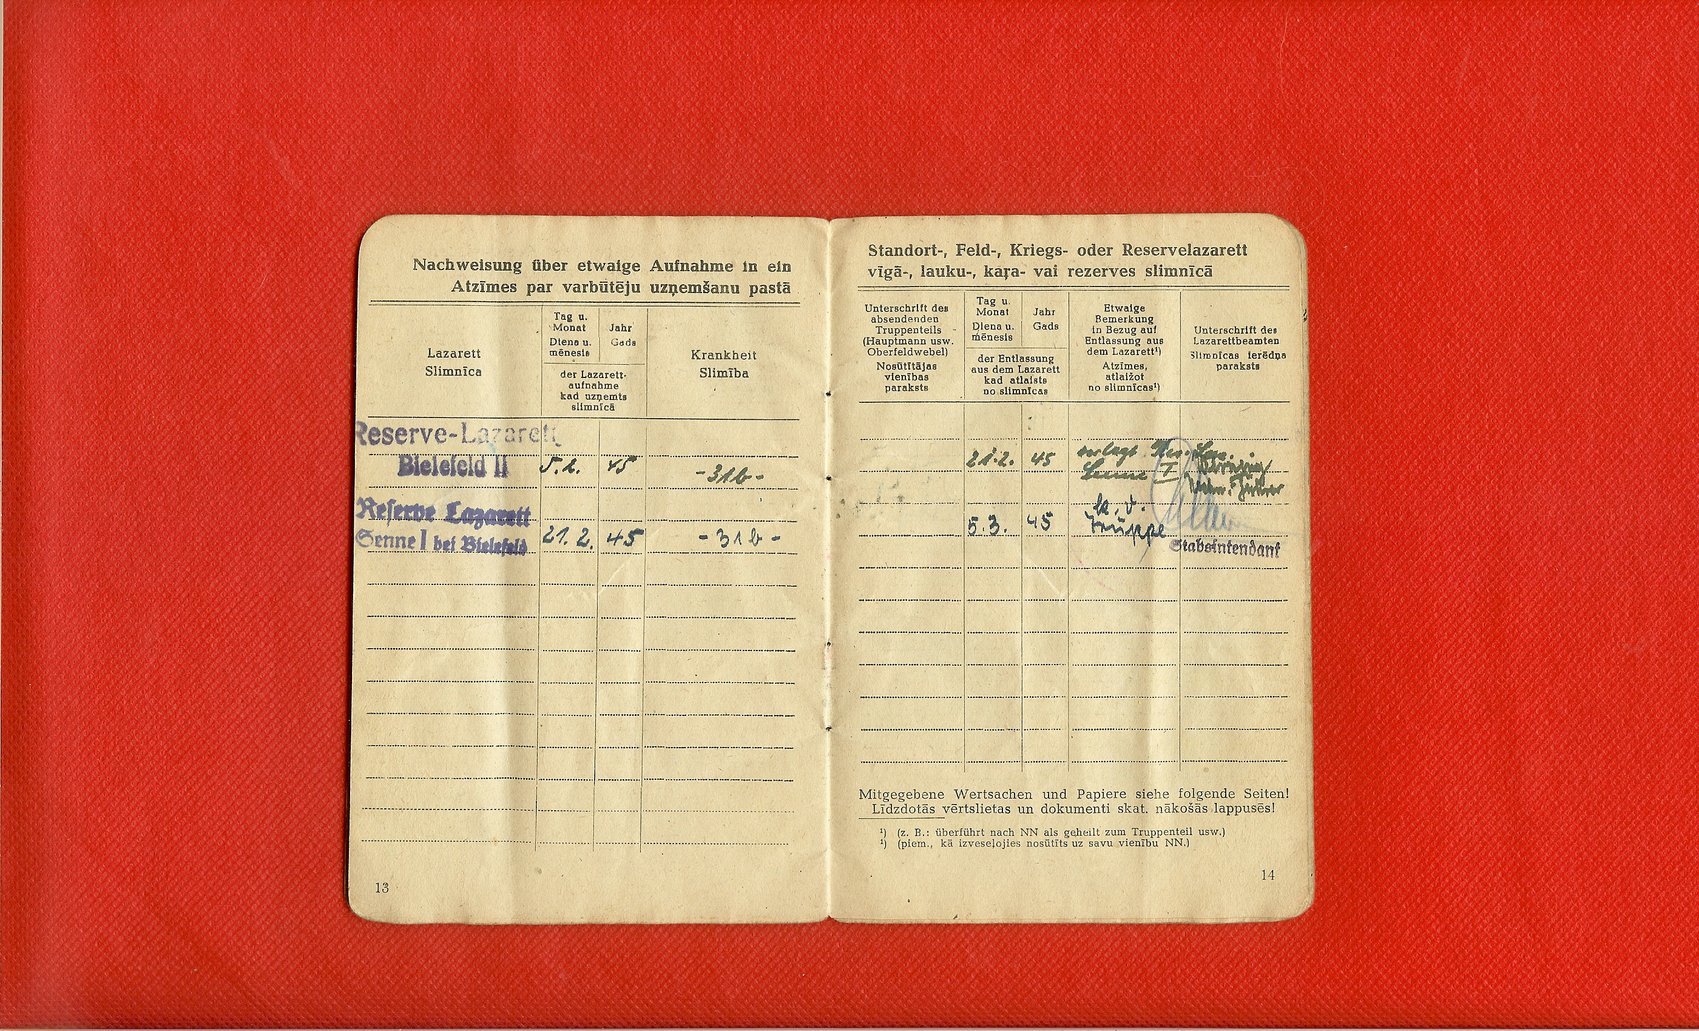 Nachweisung über etwaige Aufnahme in ein
Atzīmes par varbūtēju uzņemšanu pastā
Lazarett
Slimnīca
Tag u.
Monat
Diena u.
mēnesis
Jahr
Gads
der Lazarett-
aufnahme
kad uzņemts
slimnīcā
Krankheit
Slimība
Reserve-Lazarett
Bielefeld II
5.2. 45 -31b-
Reserve Lazarett
Senne I bei Bielefeld
21.2. 45 -31b-
13
Standort-, Feld-, Kriegs- oder Reservelazarett
vīgā-, lauku-, kaŗa- vai rezerves slimnīcā
Unterschrift des
absendenden
Truppenteils
(Hauptmann usw.
Oberfeldwebel)
Nosūtītājas
vienības
paraksts
Tag u.
Monat
Diena u.
mēnesis
Jahr
Gads
der Entlassung
aus dem Lazarett
kad atlaists
no slimnīcas
Etwaige
Bemerkung
in Bezug auf
Entlassung aus
dem Lazarett¹)
Atzīmes,
atlaižot
no slimnīcas¹)
Unterschrift des
Lazarettbeamten
Slimnīcas ierēdņa
paraksts
21.2. 45 verlegt Res. Laz.
Senne I
k.v.
5.3. 45 Truppe
Stabsintendant
Mitgegebene Wertsachen und Papiere siehe folgende Seiten!
Līdzdotās vērtslietas un dokumenti skat. nākošās lappusēs!
¹) (z. B.: überführt nach NN als geheilt zum Truppenteil usw.)
¹) (piem., kā izveseļojies nosūtīts uz savu vienību NN.)
14